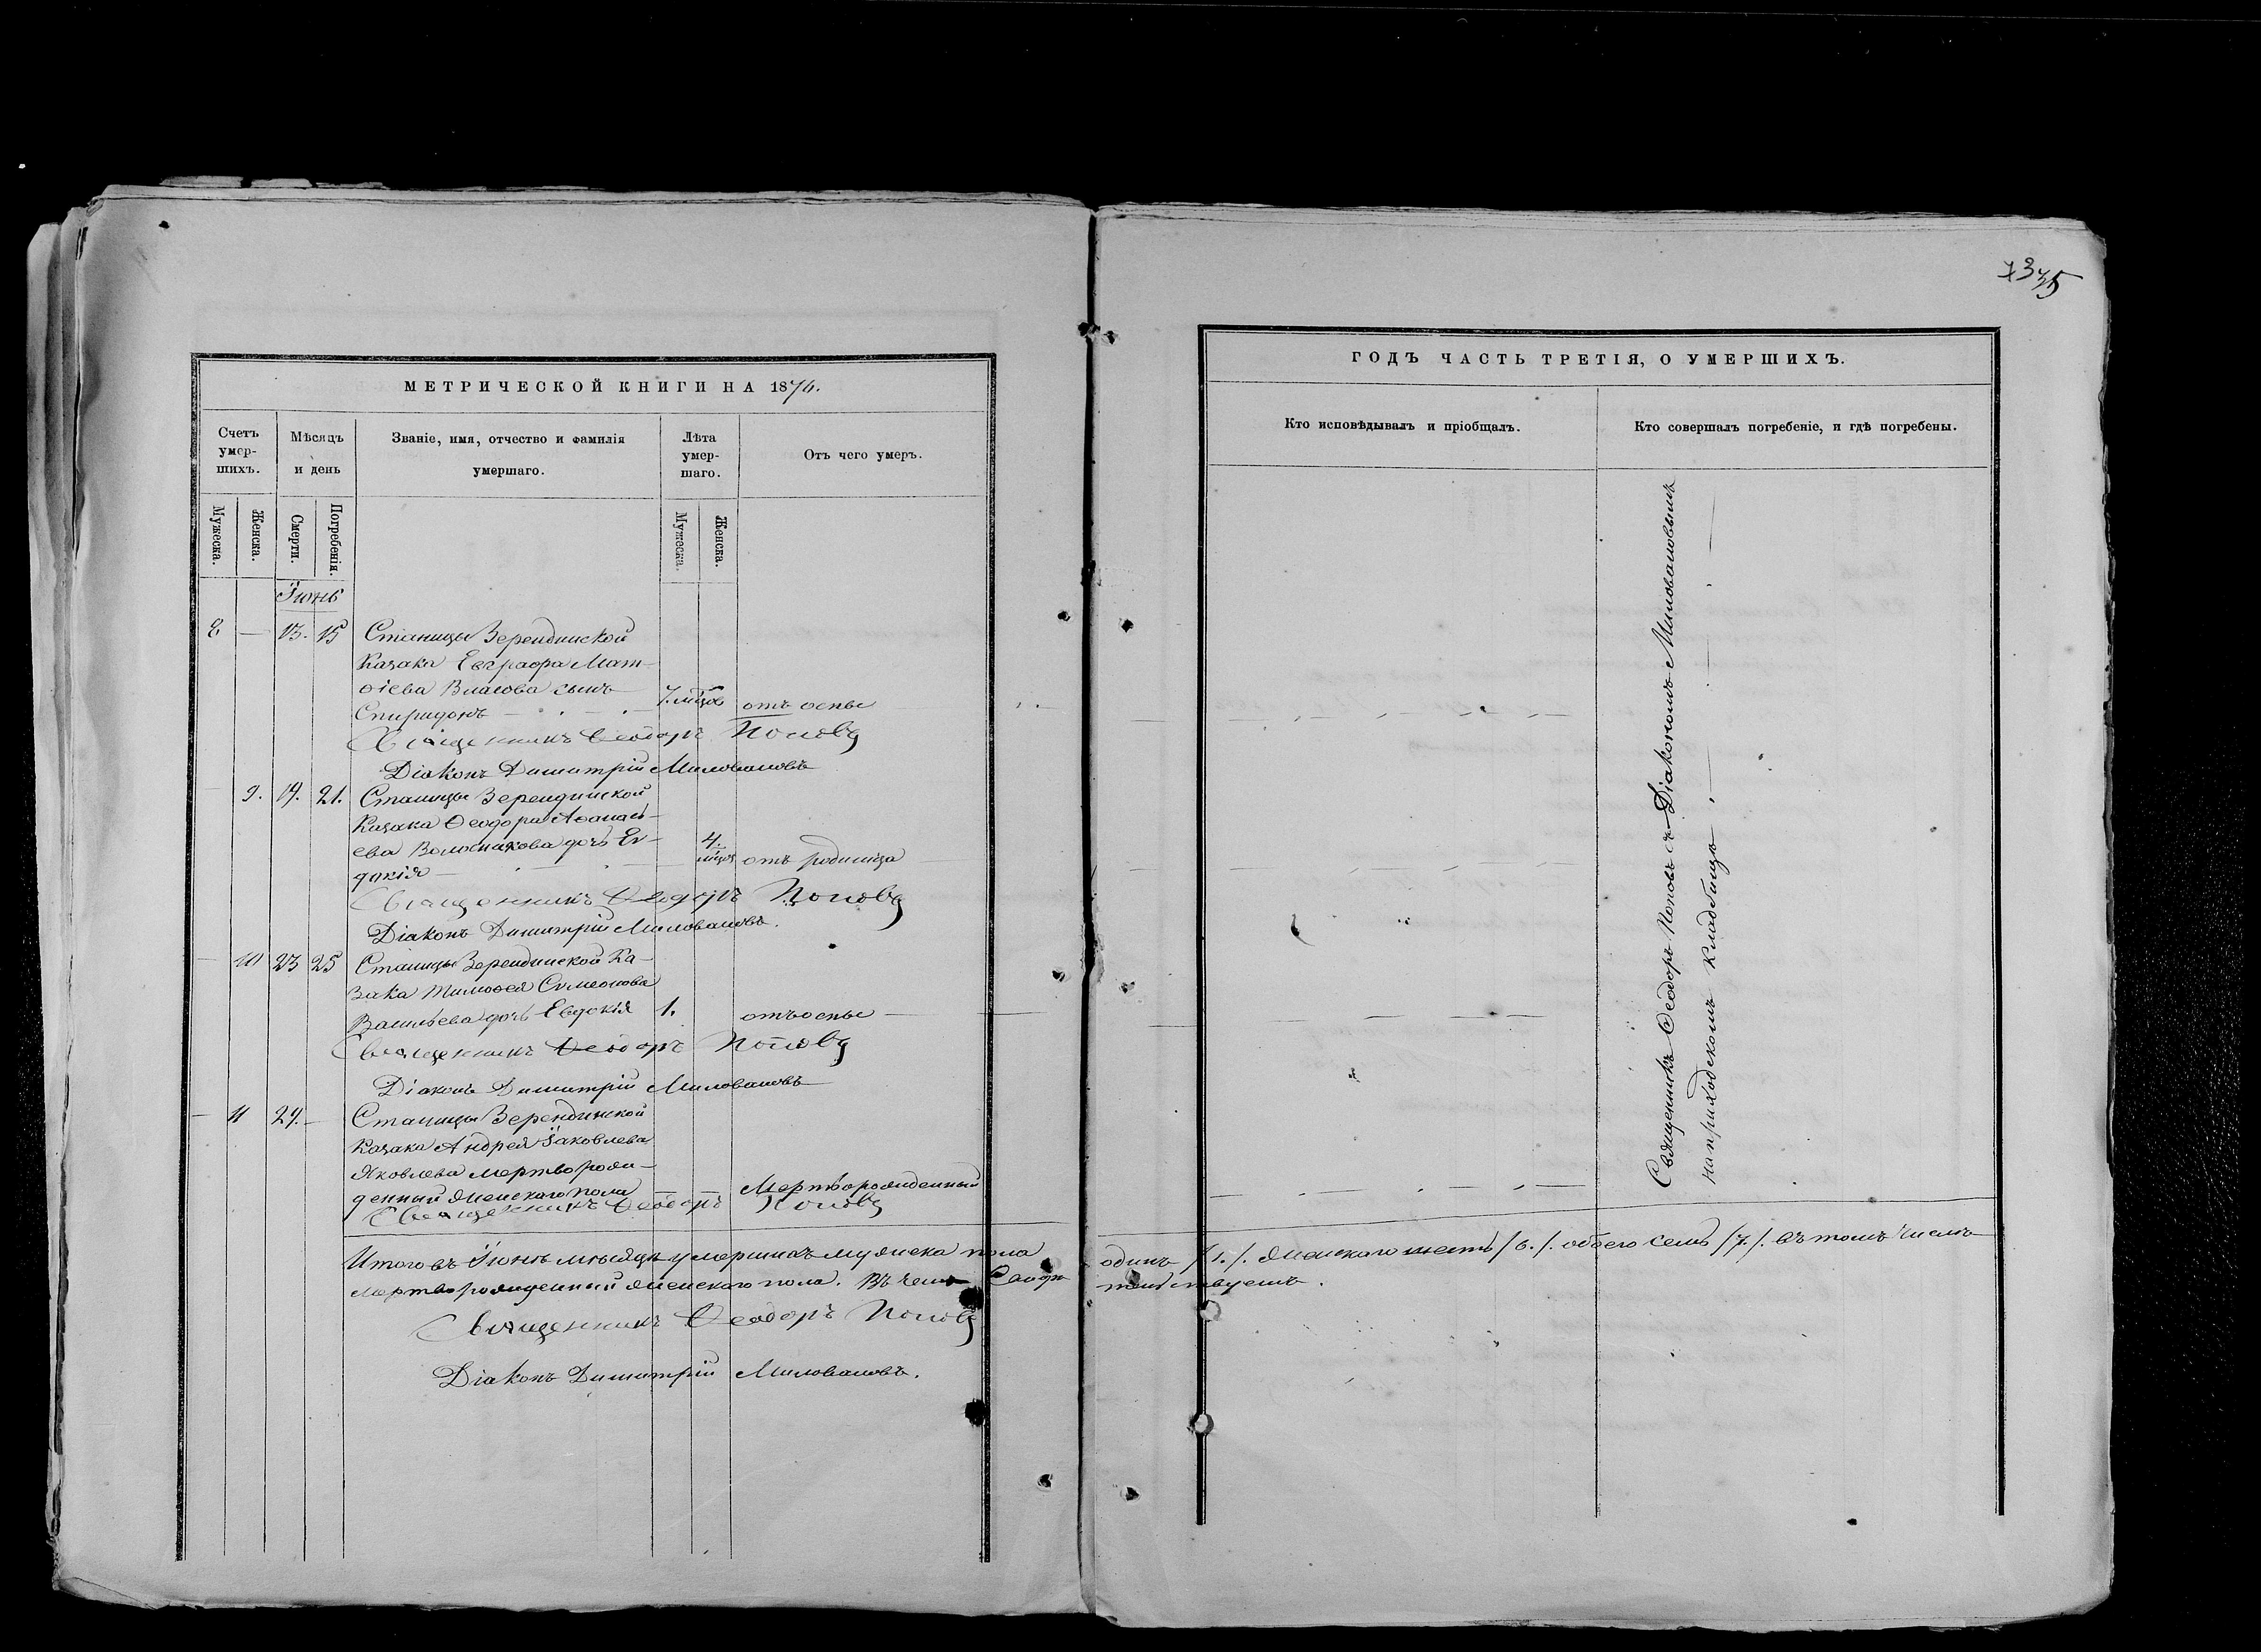 МЕТРИЧЕСКОЙ КНИГИ НА 1874.
Счетъ умер-шихъ.
Мѣсяцъ и день
Званіе, имя, отчество и фамилія умершаго.
Лѣта умер-шаго.
Отъ чего умеръ.
Мужеска.
Женска.
Смерти.
Погребенія.
Мужеска.
Женска.
Іюнь
8 — 13. 15 Станицы Зерендинской
Казака Евграфа Мат-
ѳіева Власова сынъ
Спиридонъ — 7. мцов отъ оспы
Священникъ Ѳеодоръ Поповъ
Діаконъ Димитрій Миловановъ
— 9. 19. 21. Станицы Зерендинской
Казака Ѳеодора Аѳанась-
ева дочь Ев-
докія — 4. мцов отъ родимца
Священникъ Ѳеодоръ Поповъ
Діаконъ Димитрій Миловановъ.
— 10 23 25 Станицы Зерендинской Ка-
зака Тимоѳея Симеонова
Васильева дочь Евдокія 1. отъ оспы —
Священникъ Ѳеодоръ Поповъ
Діаконъ Димитрій Миловановъ
— 11 29. — Станицы Зерендинской
Казака Андрея Іаковлева
Яковлева мертворож-
денный женскаго пола — — Мертворожденный
Священникъ Ѳеодоръ Поповъ
Итого въ Іюнѣ мѣсяцѣ умершихъ мужеска пола
мертворожденный женскаго пола. Въ чемъ Свидѣ-
Священникъ Ѳеодоръ Поповъ
Діаконъ Димитрій Миловановъ.
ГОДЪ ЧАСТЬ ТРЕТІЯ, О УМЕРШИХЪ.
Кто исповѣдывалъ и пріобщалъ.
Кто совершалъ погребеніе, и гдѣ погребены.
Священникъ Ѳеодоръ Поповъ съ Діакономъ Миловановымъ
на приходскомъ кладбищѣ
одинъ /1./. женскаго шесть /6./. обоего семь /7./. въ томъ числѣ
тельствуемъ.